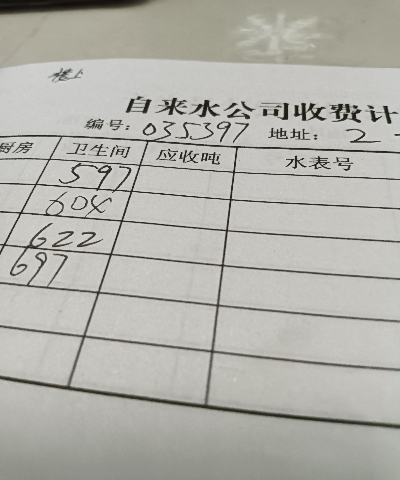 楼上
自来水公司收费计
编号: 035397 地址: 2
厨房 卫生间 应收吨 水表号
597
604
622
697